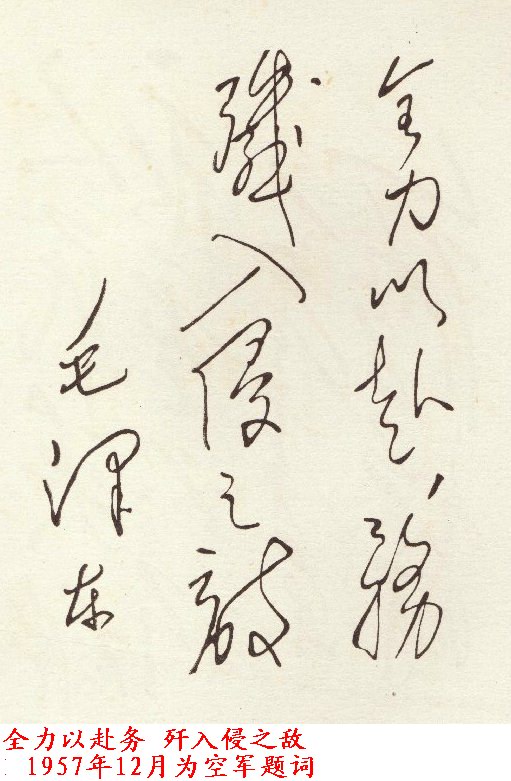 全力以赴,務
殲入侵之敵
毛泽东
全力以赴务 歼入侵之敌
1957年12月为空军题词